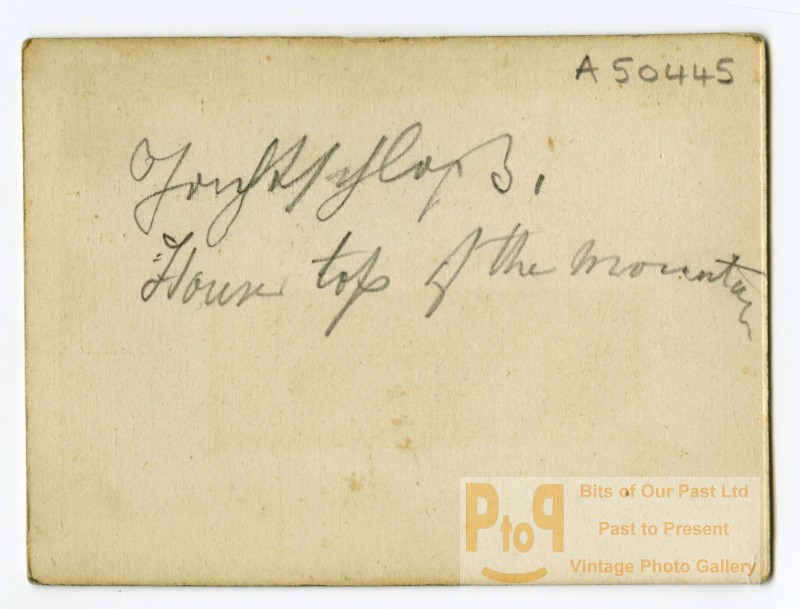 A50445
Jagdschloß.
House top of the mountain
PtoP
Bits of Our Past Ltd
Past to Present
Vintage Photo Gallery